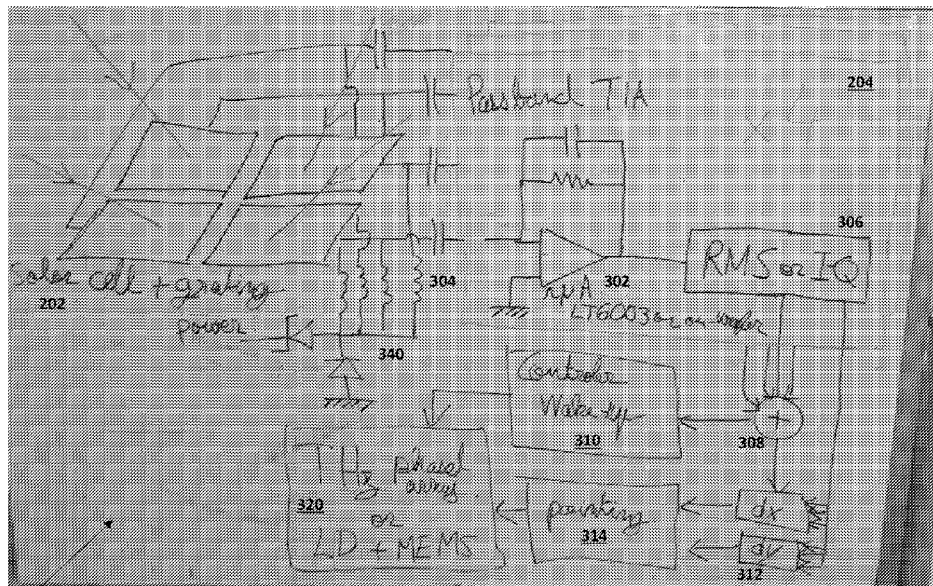 204
Passband TIA
306
RMS or IQ
solar cell + grating
202
304
302
nμA
LT6003 or on wafer
power
340
Controler
Wake-up
310
308
THz phased
array
or
LD + MEMS
320
pointing
314
dx
dy
312